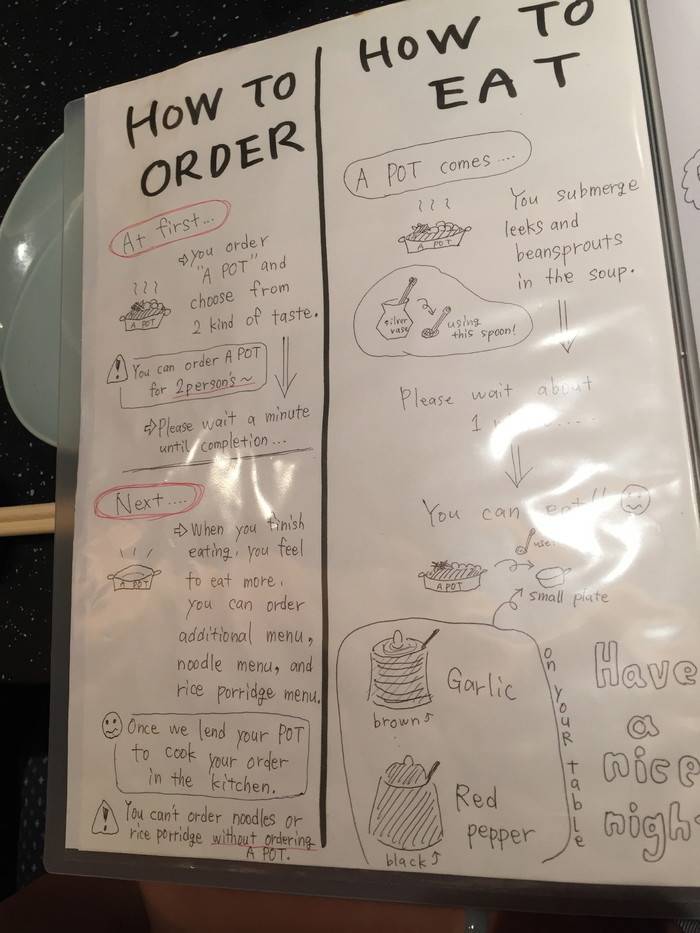 HOW TO
ORDER
At first...
⇨You order
"A POT" and
choose from
2 kind of taste.
A POT
You can order A POT
for 2person's~
⇨Please wait a minute
until completion...
Next....
⇨When you finish
eating, you feel
to eat more,
you can order
additional menu,
noodle menu, and
rice porridge menu.
A POT
Once we lend your POT
to cook your order
in the kitchen.
You can't order noodles or
rice porridge without ordering
A POT.
HOW TO
EAT
A POT comes....
You submerge
leeks and
beansprouts
in the soup.
A POT
silver
vase
using
this spoon!
Please wait about
1
You can eat!!
use!
A POT
small plate
Garlic
brown
Red
pepper
black
on your table
Have
a
nice
nigh